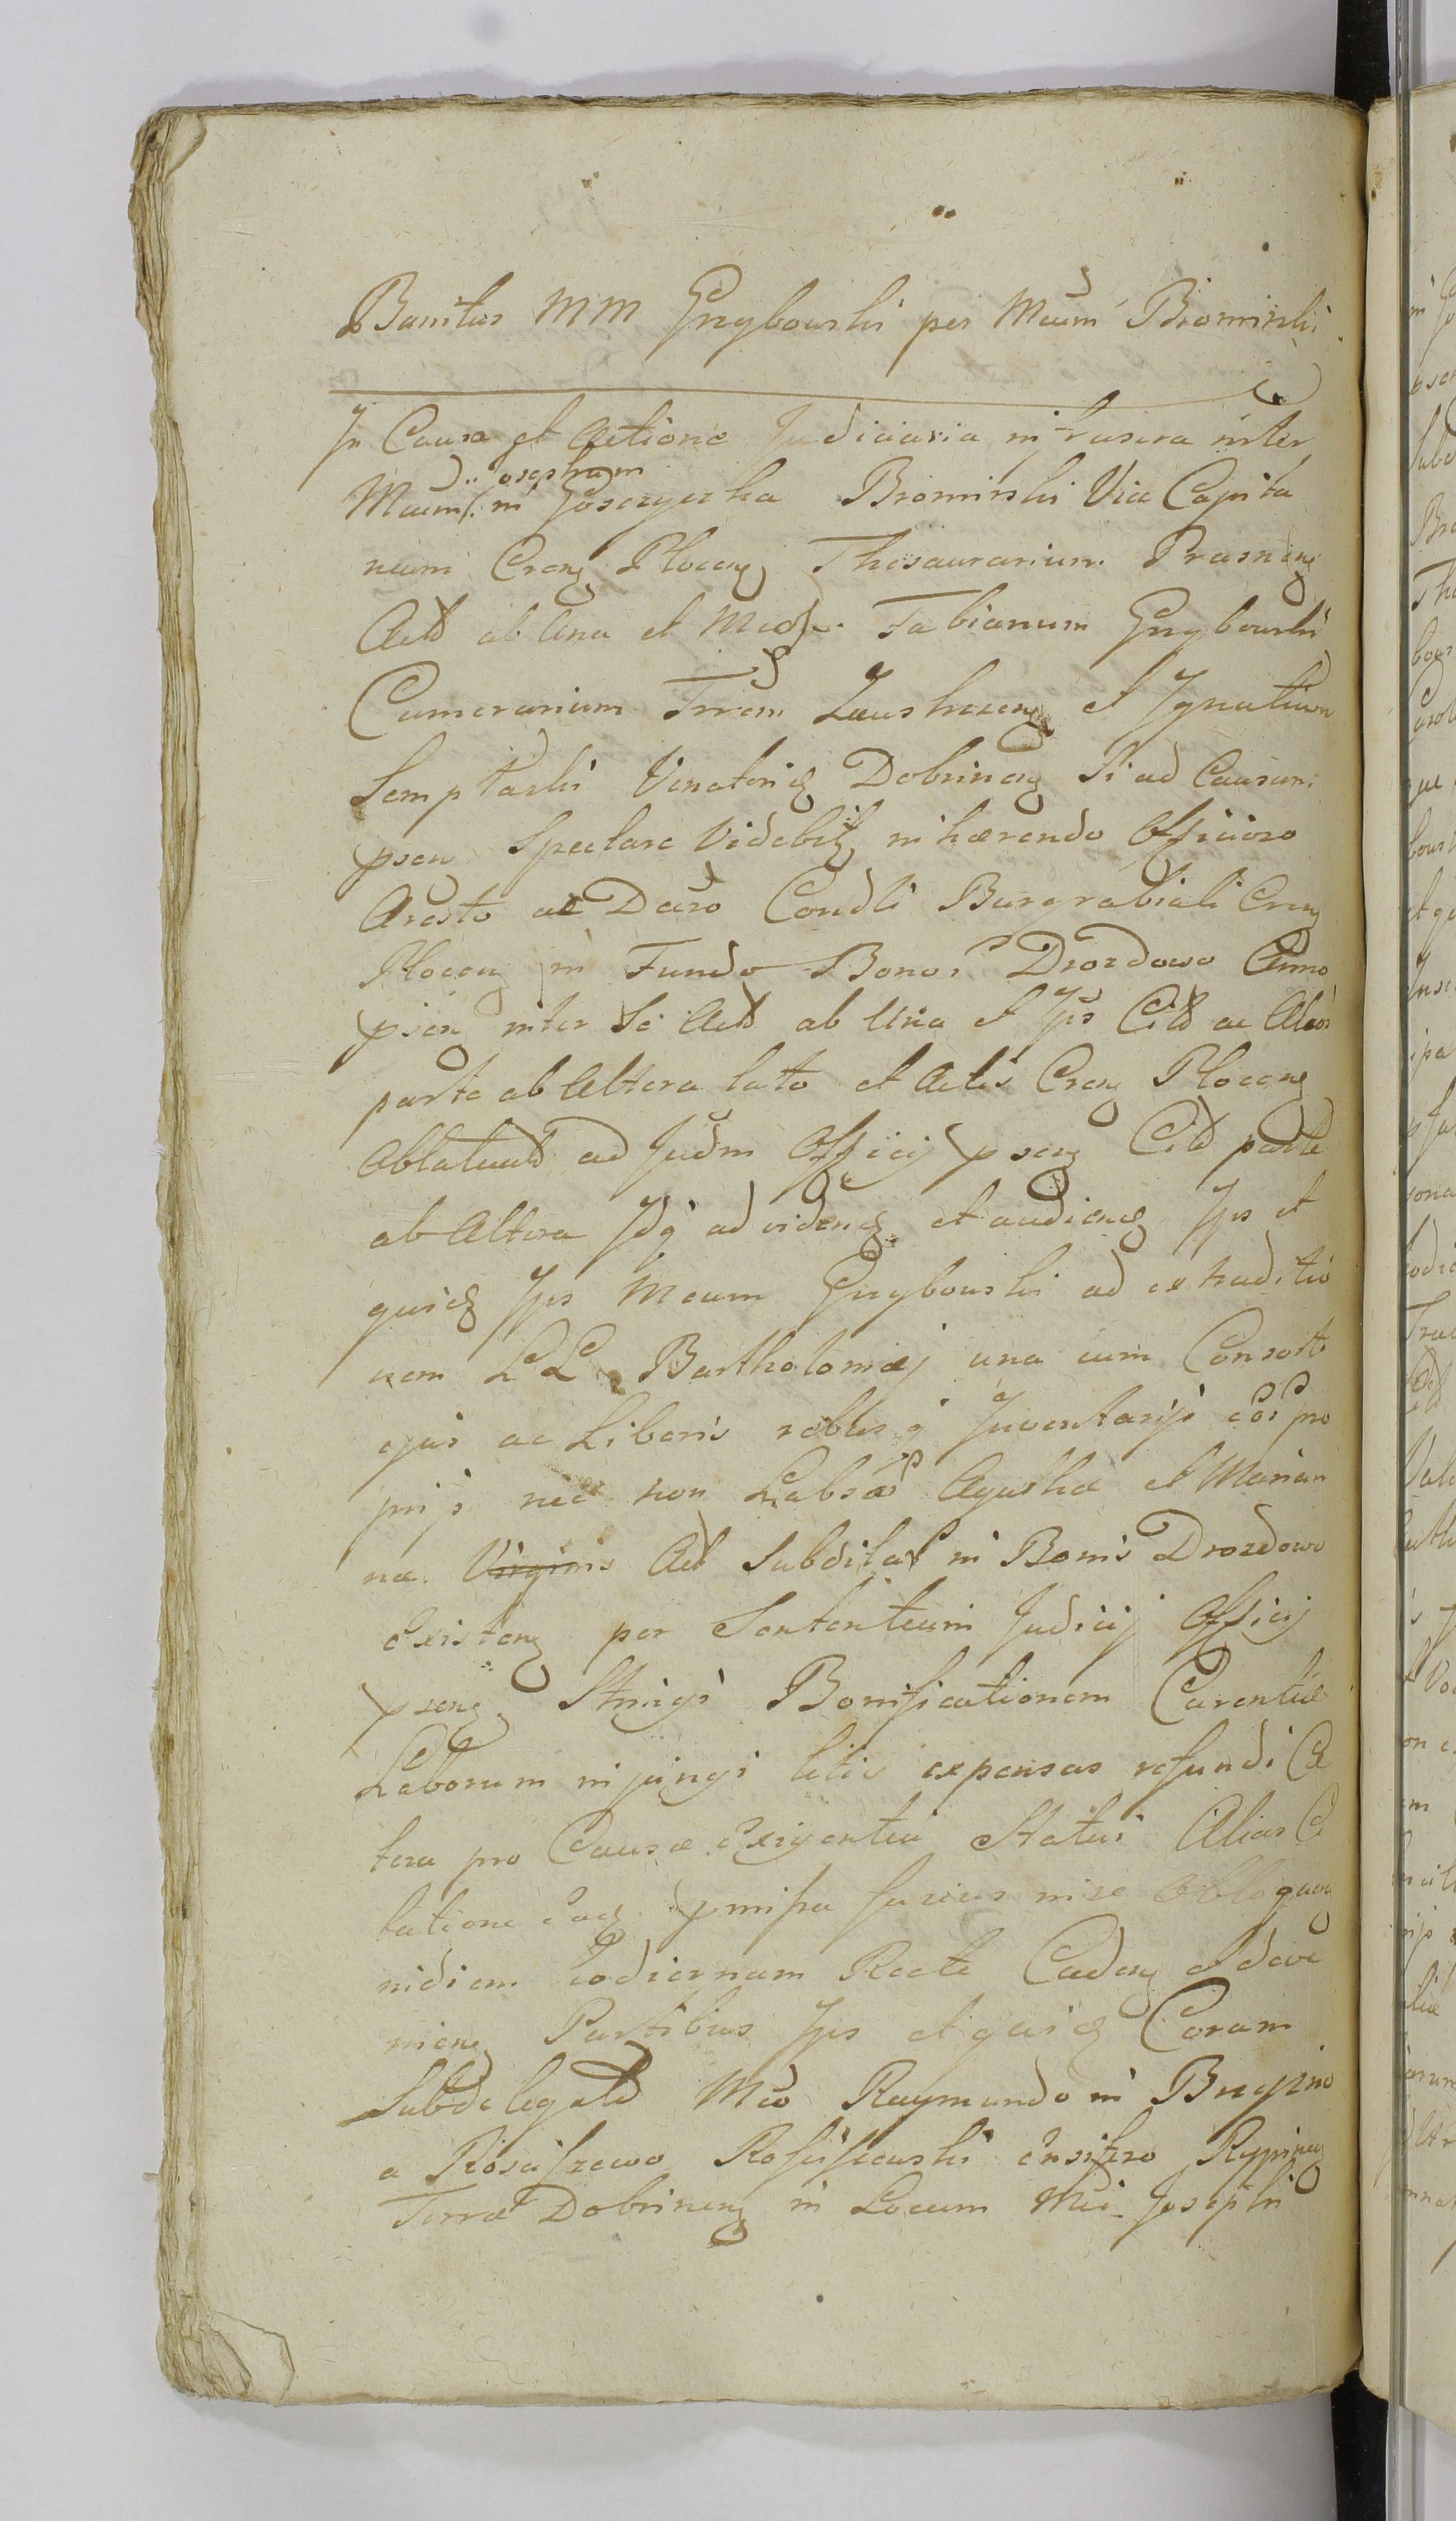 Banitus MM Grzybowski per Mcum Biominski
In Causa et Actione Judiciaria infrascra inter
Mcum Josephum in Gosczycka Brominski Vice Capita
neum Crens Plocens Thesaurarium Prasnens
Act ab Una et Mcos Fabianum Grzybowski
Camerarium Trrem Zauskrzens et Ignatium
Semptarski Venatorie Dobrinens Si ad Causam
psen Spectare Videbit inhærendo Officioso
Aresto ac Dciso Condli Burgrabiali Crens
Plocens in Fundo Bonor Drozdowo Anno
psen inter Se Act ab Una et Jps Citt ac Alias
parte ab Altera lato et Actis Crens Plocens
Oblatuatt ad Judm Officij psens Citt parte
ab Altera Jdq ad videns et audiens Jps et
quiq Jps Mcum Grzybowski ad extraditio
nem LL Bartholomæj una cum Consorte
ejus ac Liberis rebus q Inventarijs eor pro
prijs nec non Labsæ Agathæ et Marian
næ Virginis Act Subditar in Bonis Drozdowo
Existens per Sententiam Judicij Officij
psens Stringi Bonificationem Carentiæ
Laborum injungi litis expensas refundi Cæ
tera pro Causæ Exigentia Statui Alias Ci
tatione Eaq pmissa fusius in se Obloquens
nidiem hodiernam Recte Cadens et deve
niens Partibus Jps et quiq Coram
Subdelegato Mco Raymundo in Bugzino
a Rosciszewo Rosciszewski Ensifero Rypinens
Terræ Dobrinens in Locum Mci Josephi